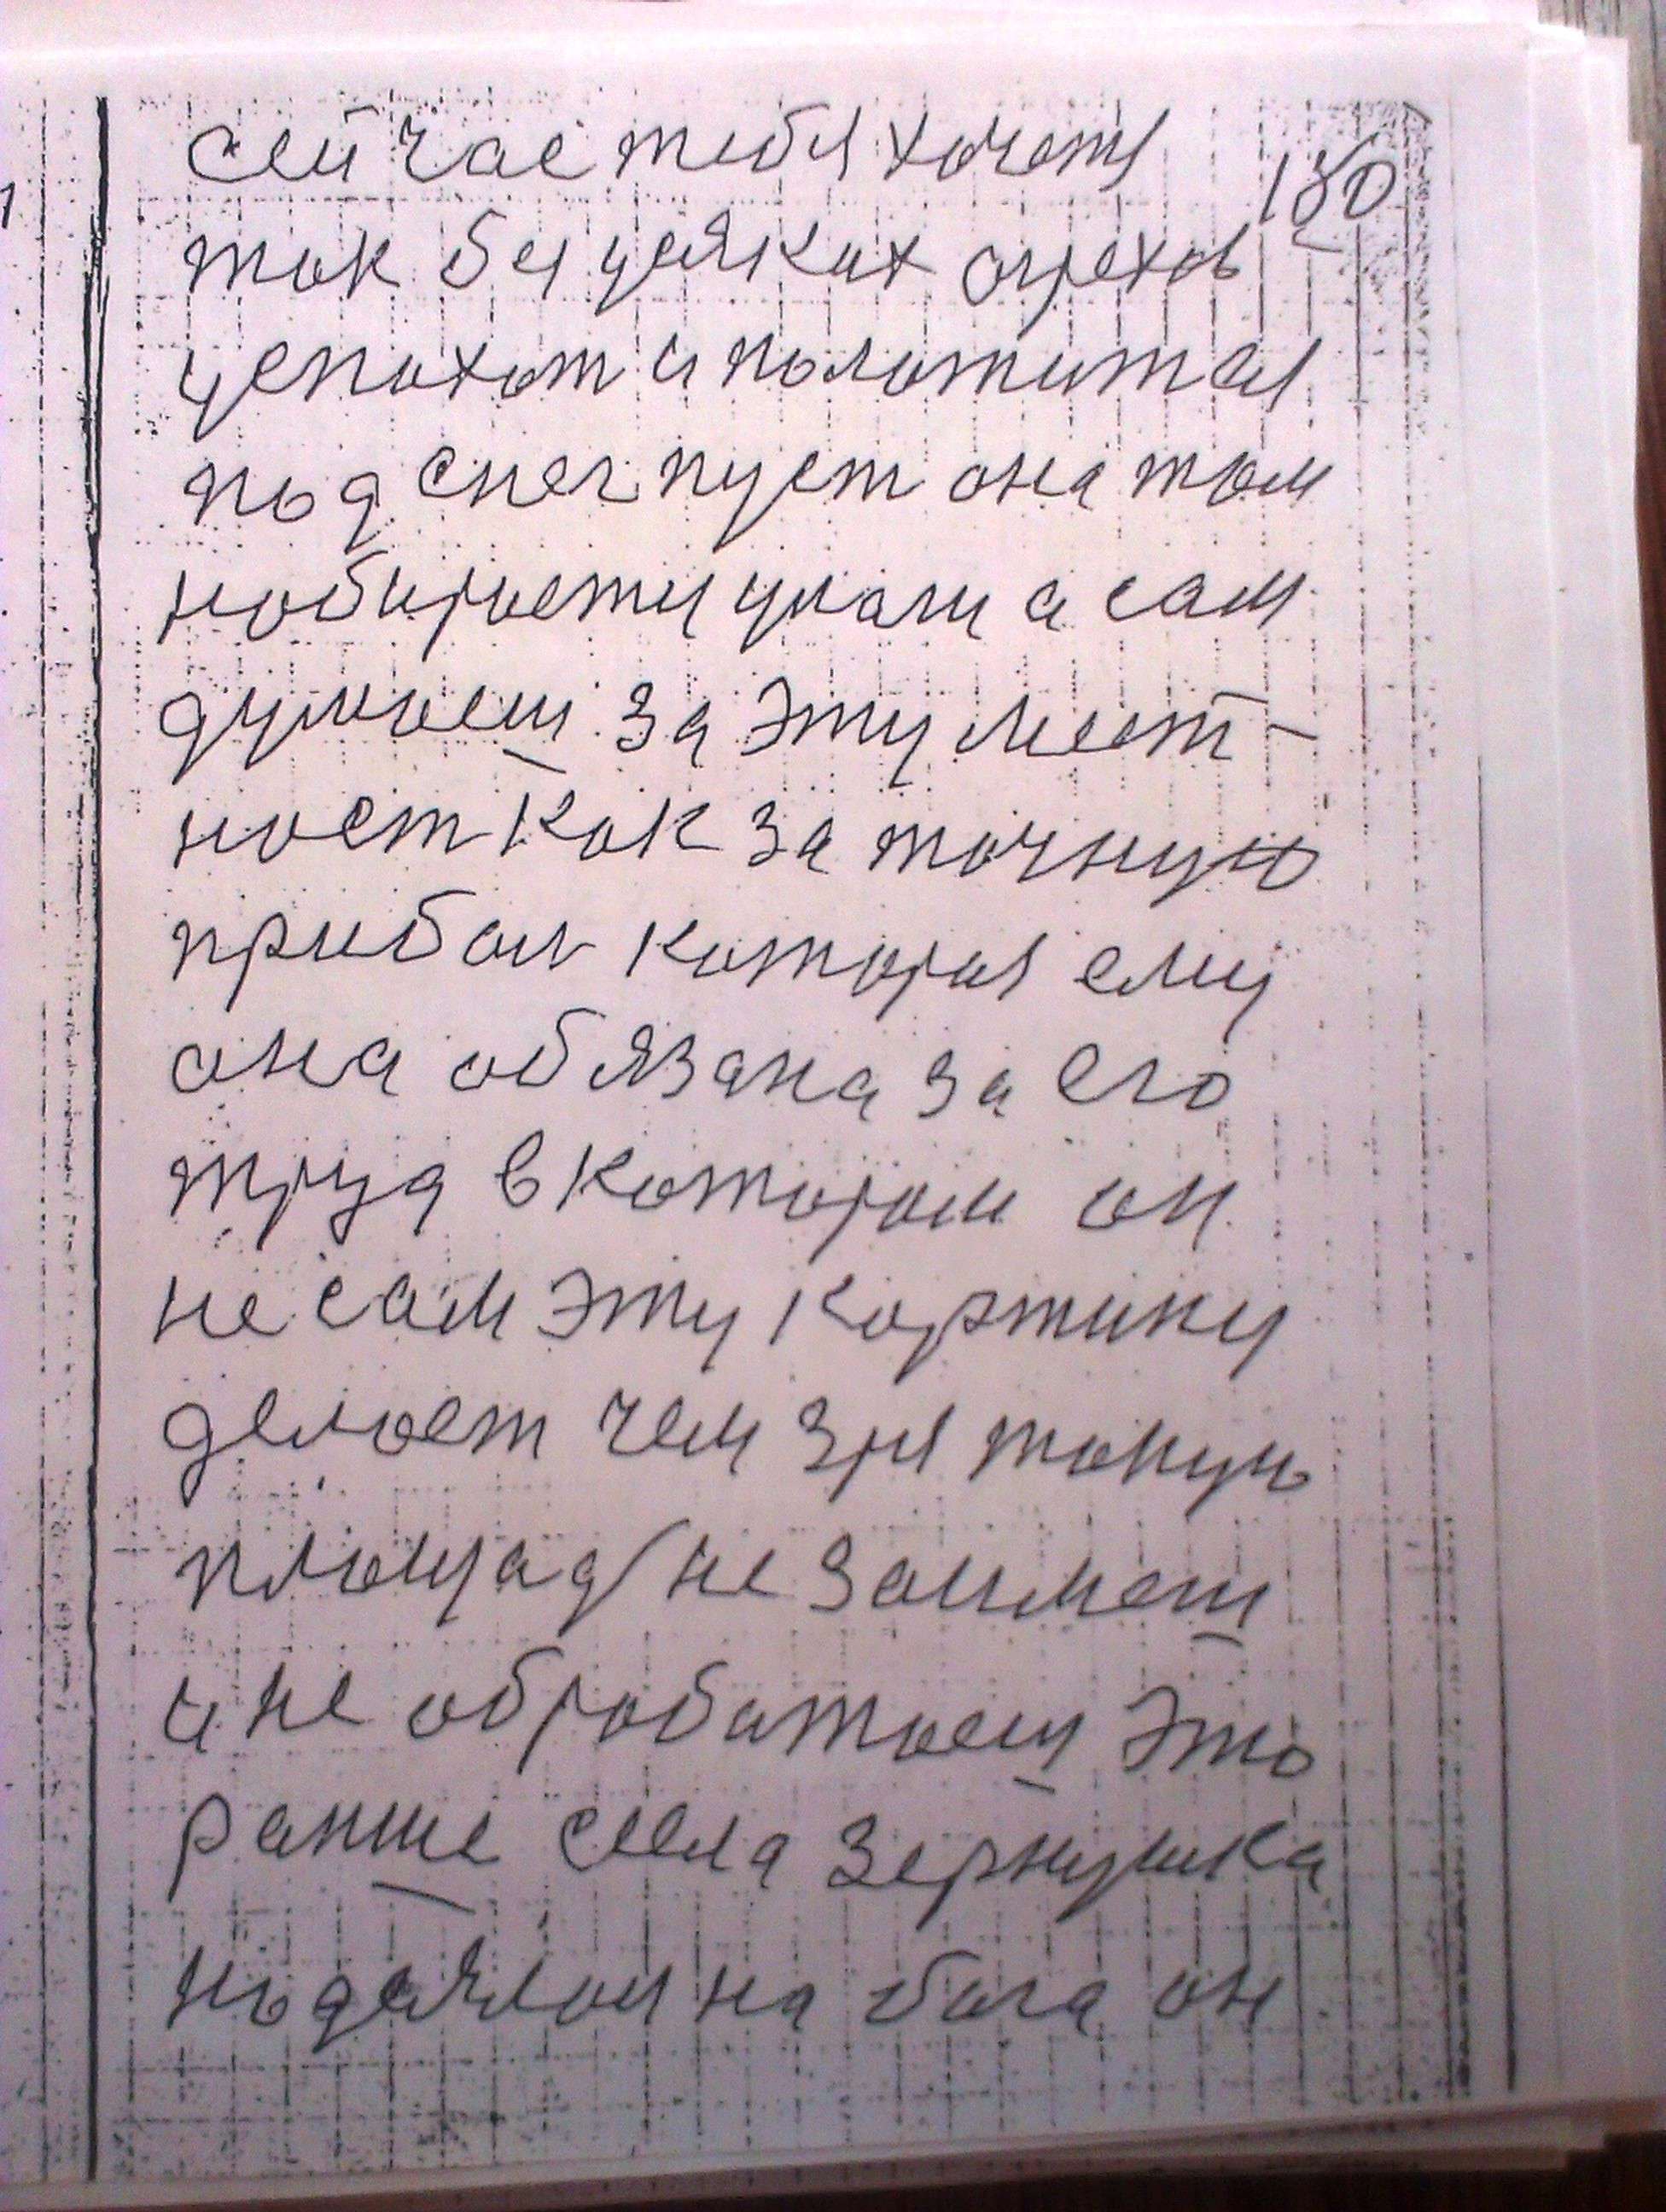 180
сейчас тебя хочетя
так бы усяких огрехов
успахат и положится
под снег пуст она там
набираети улаги а сам
думаеш за эту мест-
ност как за точную
прибал которая ему
она обязана за его
труд в котором он
не сам эту картину
делает чем зря такую
площад не займеш
и не обробатоеш это
ранше сеела зернушка
надеялся на бога он